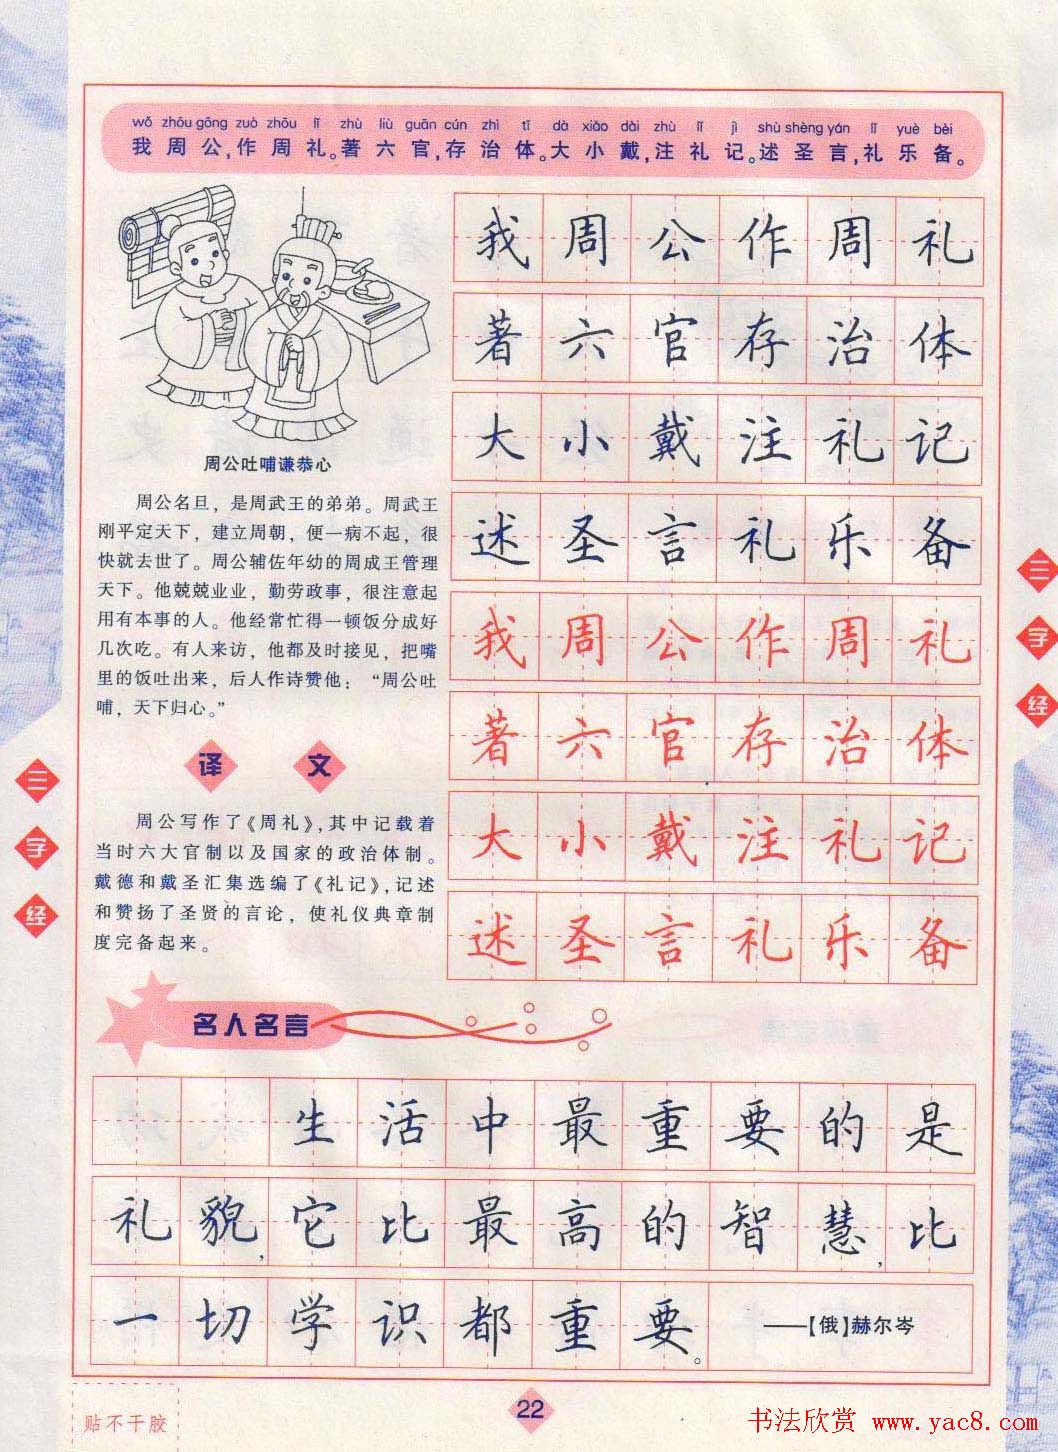 wǒ zhōu gōng zuò zhōu lǐ zhù liù guān cún zhì tǐ dà xiǎo dài zhù lǐ jì shù shèng yán lǐ yuè bèi
我周公,作周礼。著六官,存治体。大小戴,注礼记。述圣言,礼乐备。
周公吐哺谦恭心
周公名旦，是周武王的弟弟。周武王
刚平定天下，建立周朝，便一病不起，很
快就去世了。周公辅佐年幼的周成王管理
天下。他兢兢业业，勤劳政事，很注意起
用有本事的人。他经常忙得一顿饭分成好
几次吃。有人来访，他都及时接见，把嘴
里的饭吐出来，后人作诗赞他：“周公吐
哺，天下归心。”
译文
周公写作了《周礼》,其中记载着
当时六大官制以及国家的政治体制。
戴德和戴圣汇集选编了《礼记》,记述
和赞扬了圣贤的言论，使礼仪典章制
度完备起来。
我周公作周礼
著六官存治体
大小戴注礼记
述圣言礼乐备
我周公作周礼
著六官存治体
大小戴注礼记
述圣言礼乐备
三字经
三字经
名人名言
生活中最重要的是
礼貌,它比最高的智慧,比
一切学识都重要。
——【俄】赫尔岑
22
贴不干胶
书法欣赏 www.yac8.com